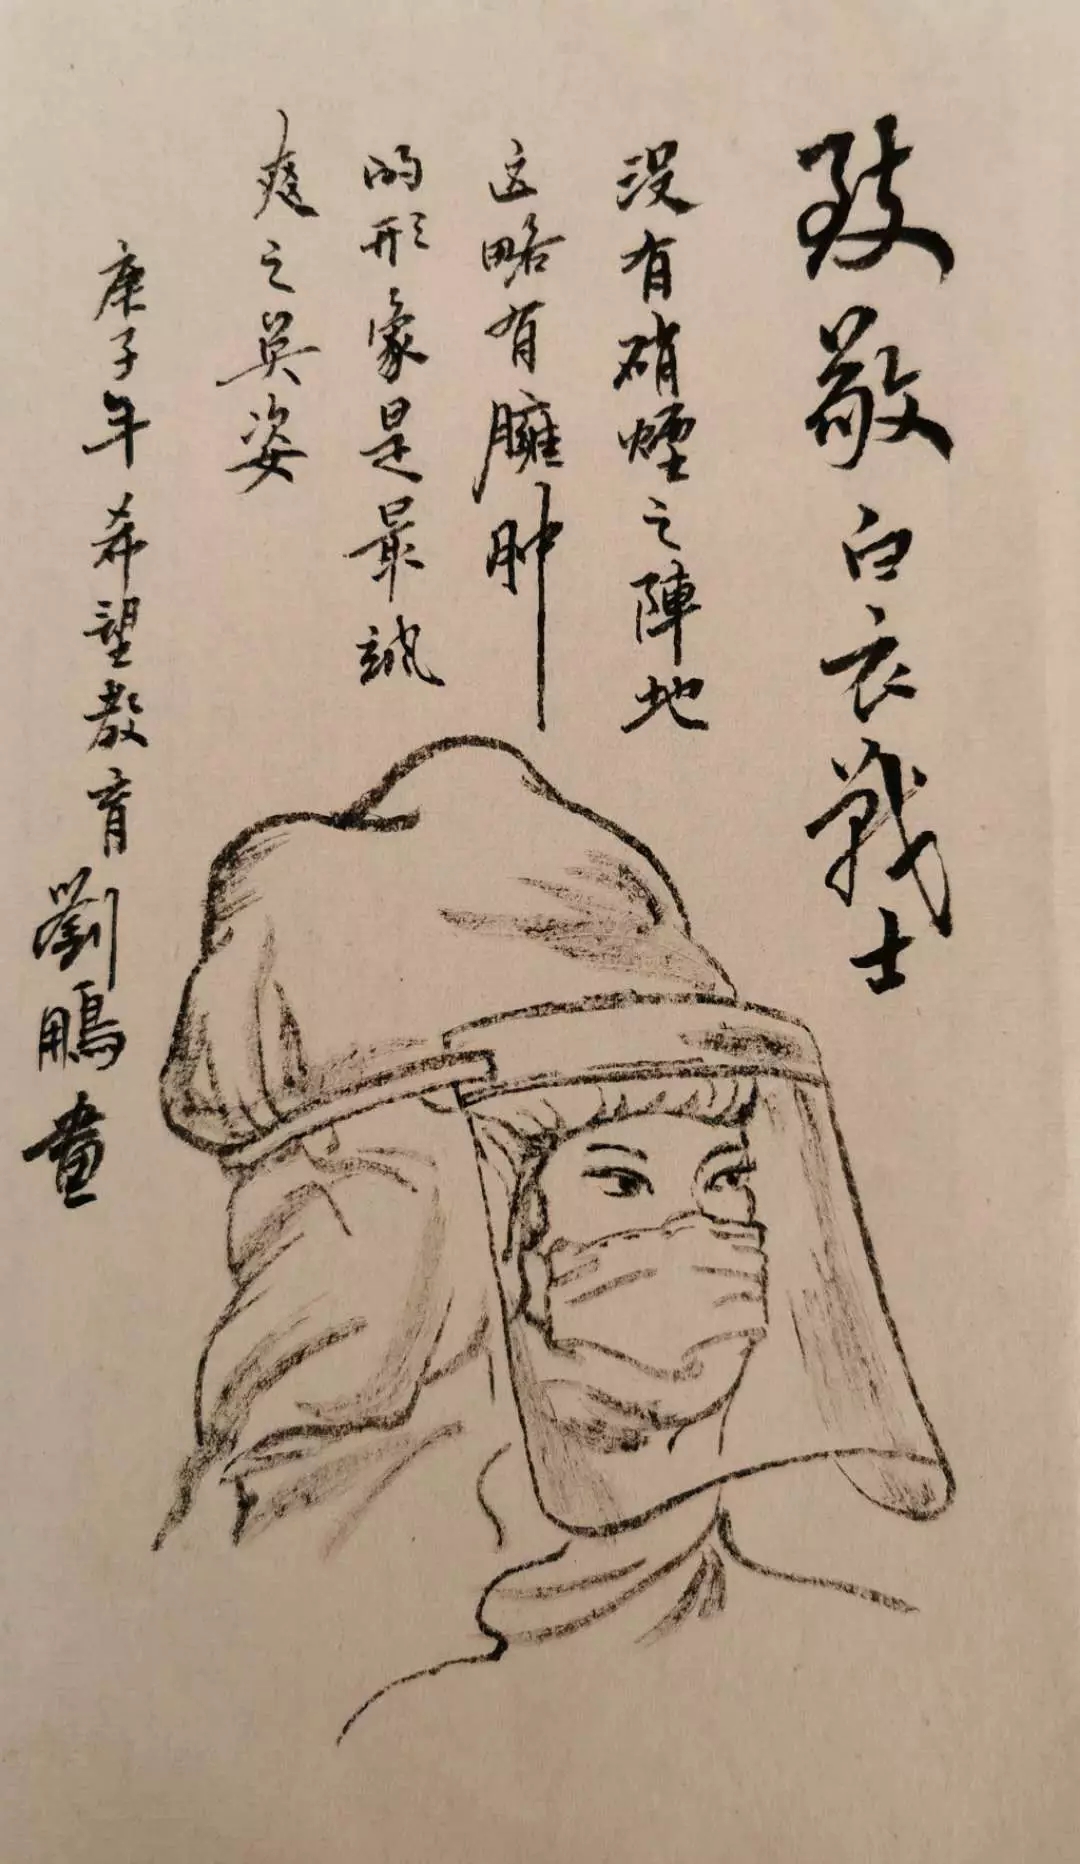 致敬白衣戰士
没有硝煙之陣地
这略有臃肿
的形象是最飒
爽之英姿
庚子年希望教育劉鵬畫